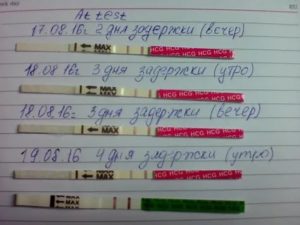 At test
17.08.16г 2 дня задержки (вечер)
MAX HCG HCG HCG HCG HCG
18.08.16г 3 дня задержки (утро)
MAX HCG HCG HCG HCG
18.08.16г 3 дня задержки (вечер)
MAX HCG HCG HCG HCG
19.08.16 4 дня задержки (утро)
MAX HCG HCG HCG HCG
MAX